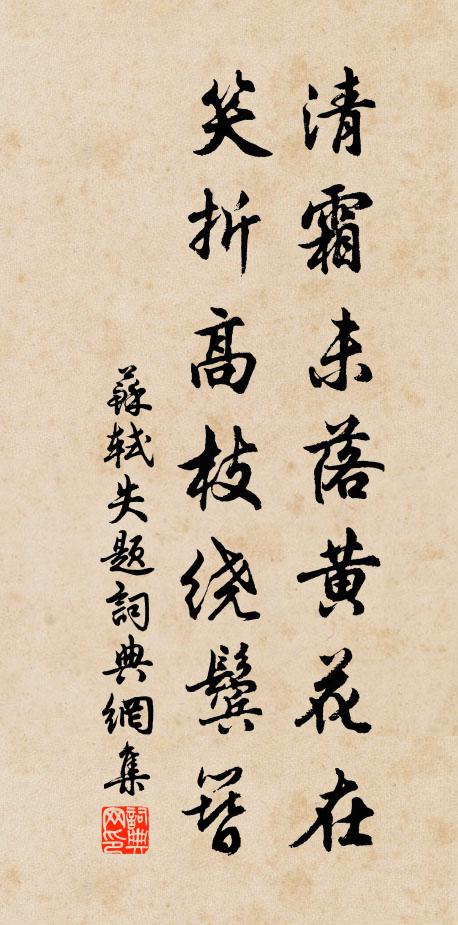 清霜未落黄花在
笑折高枝绕鬓簪
蘇軾失题詞典網集
詞典
网印